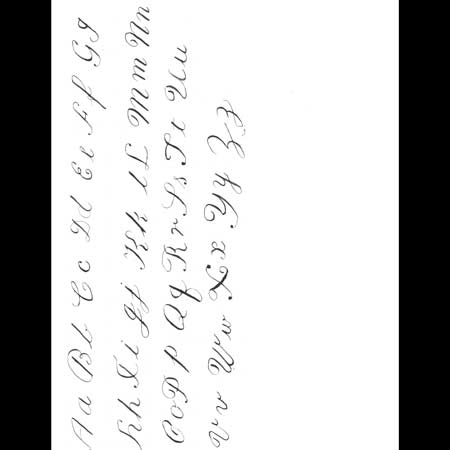 Aa Bb Cc Dd Ee Ff Gg
Hh Ii Jj Kk lL Mm Nn
Oo Pp Qq Rr Ss Tt Uu
Vv Ww Xx Yy Zz